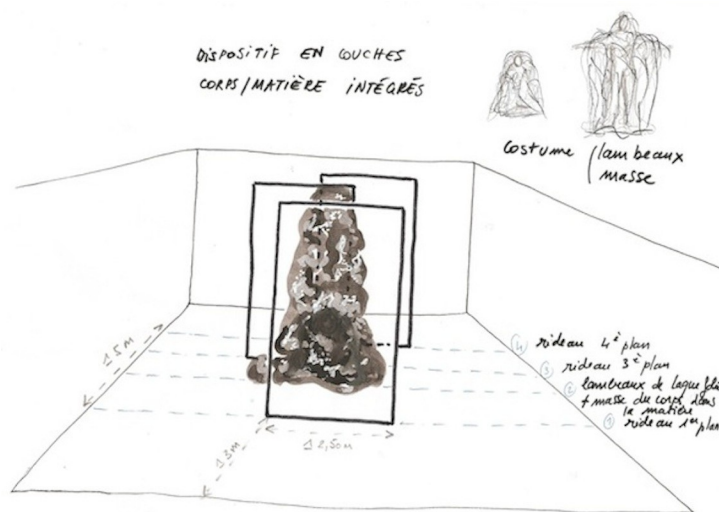 DISPOSITIF EN COUCHES
CORPS/MATIÈRE INTÉGRÉS
Costume / lambeaux
masse
④ rideau 4è plan
③ rideau 3è plan
② lambeaux de laque
+ masse du corps dans
la matière
① rideau 1er plan
5m
3m
2,50m